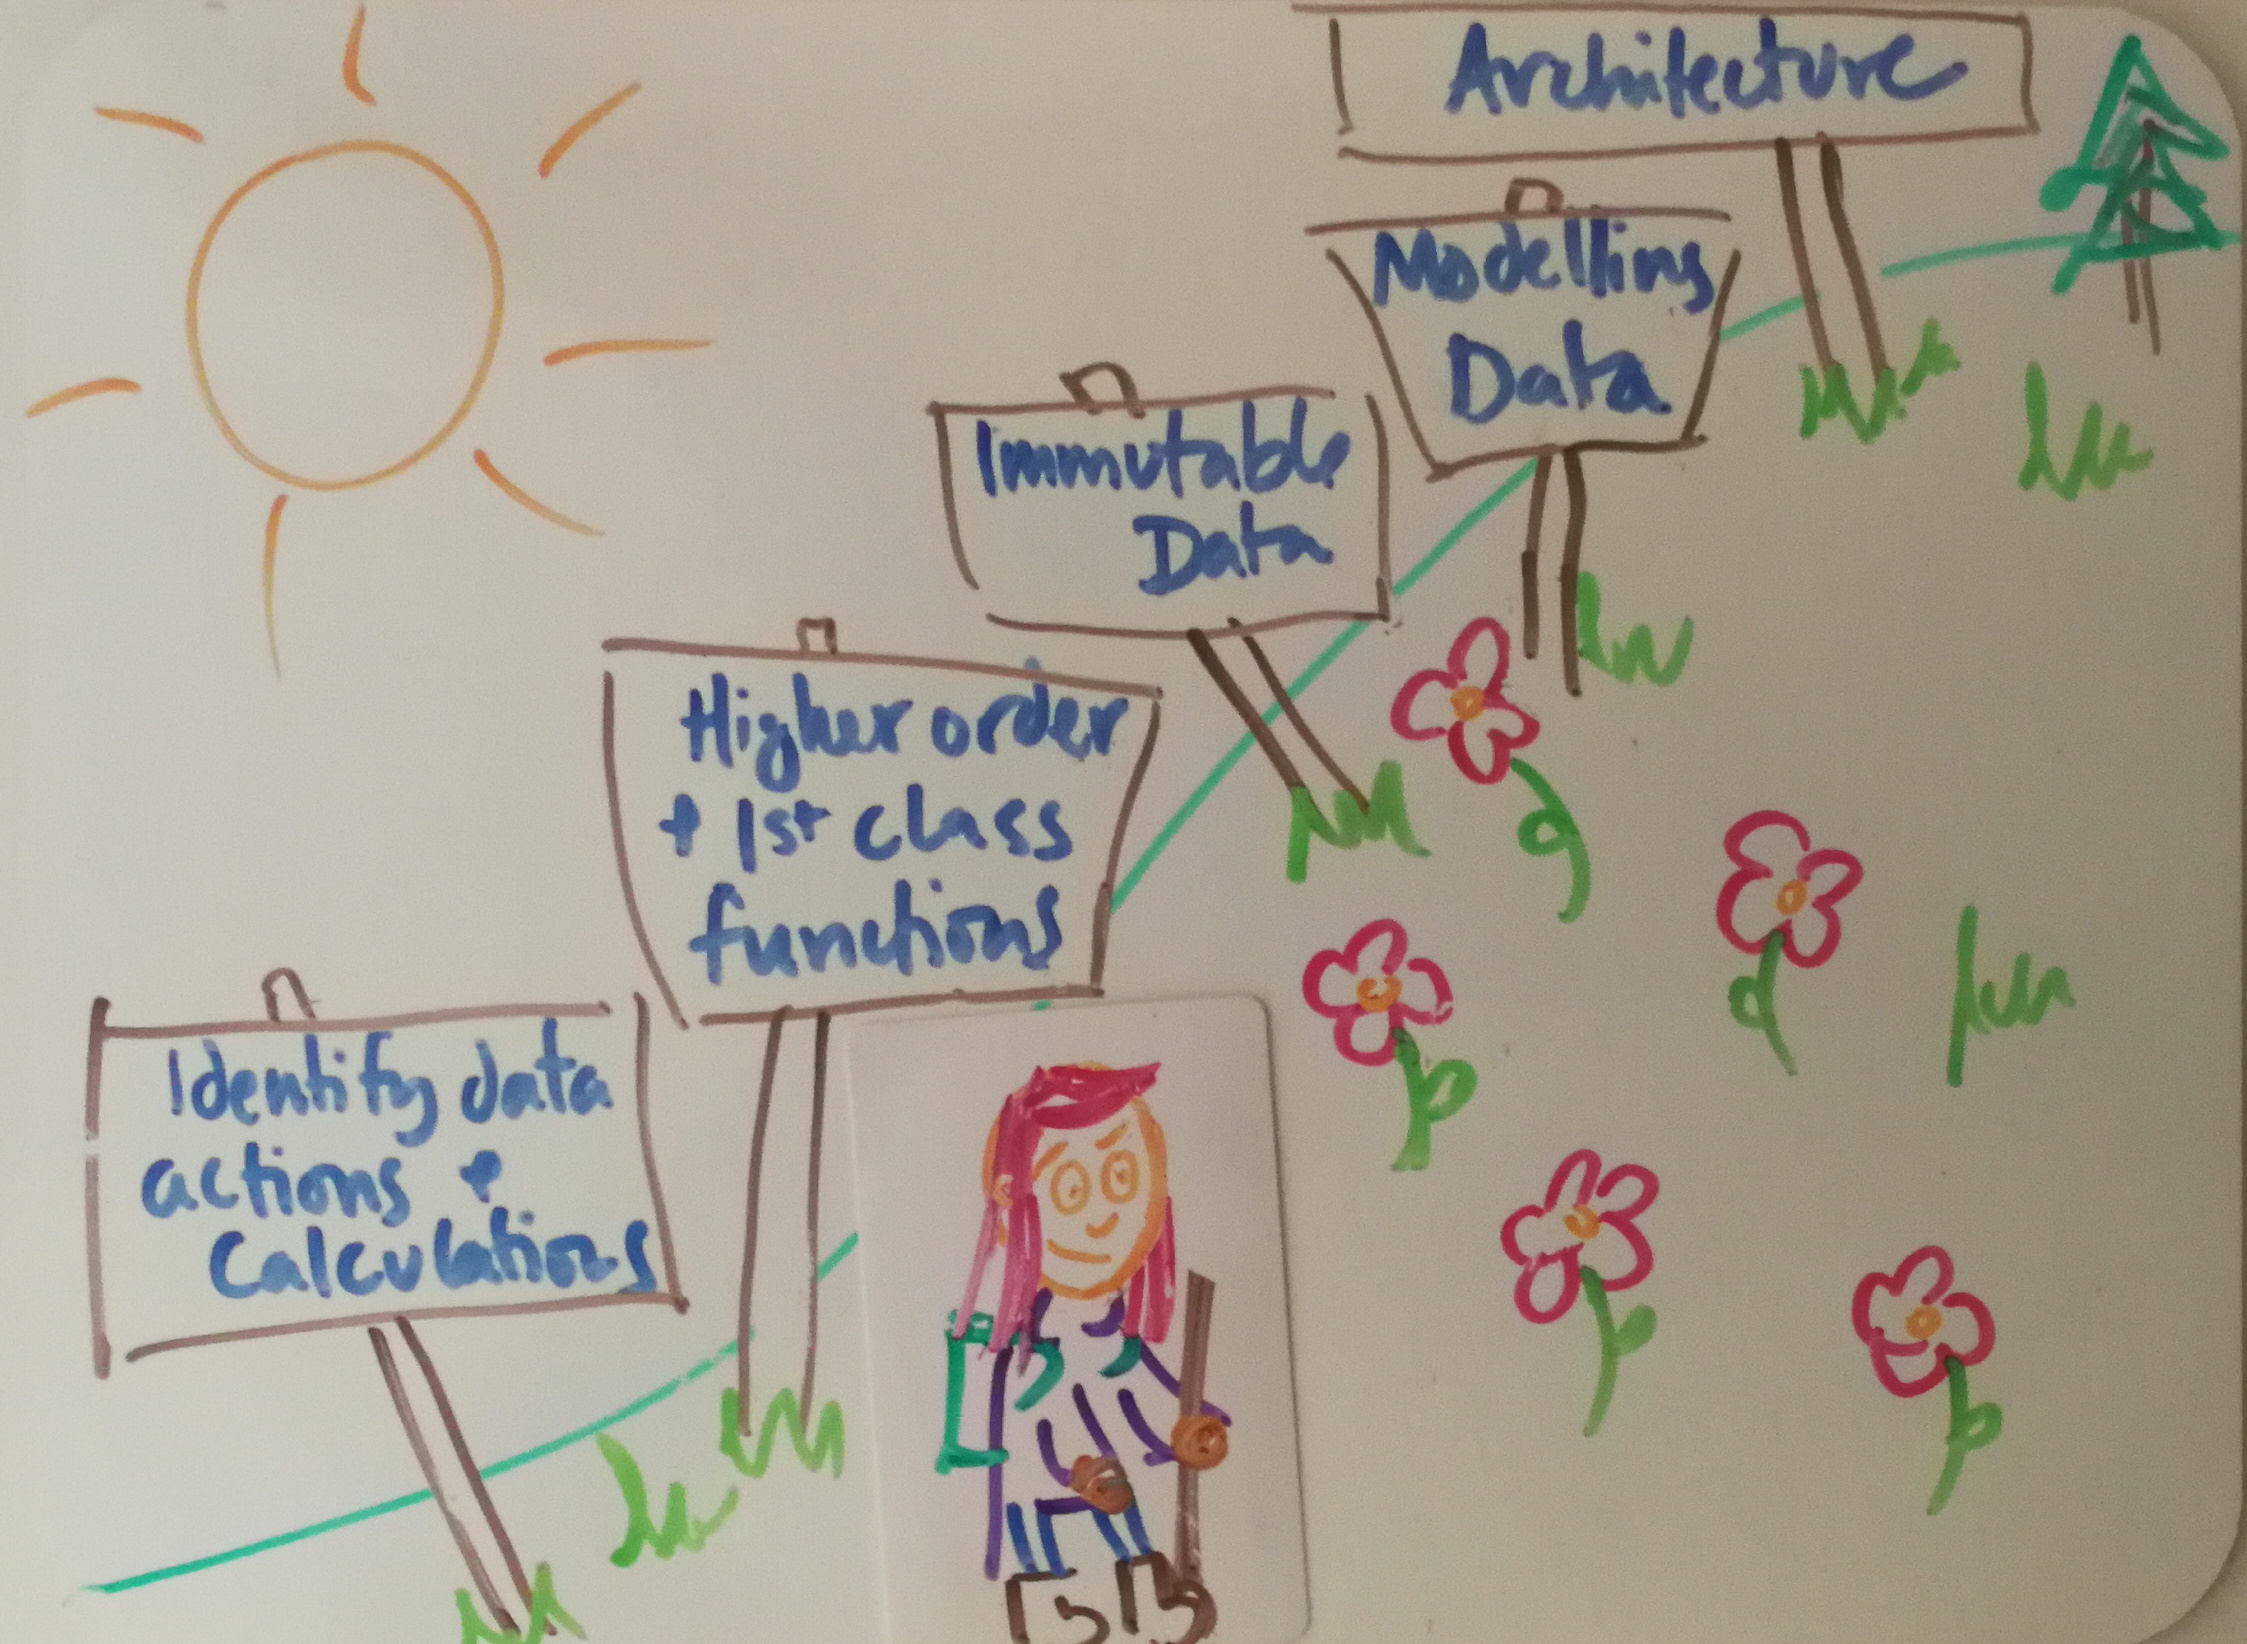 Architecture
Modelling
Data
Immutable
Data
Higher order
+ 1st class
functions
Identify data
actions +
Calculations